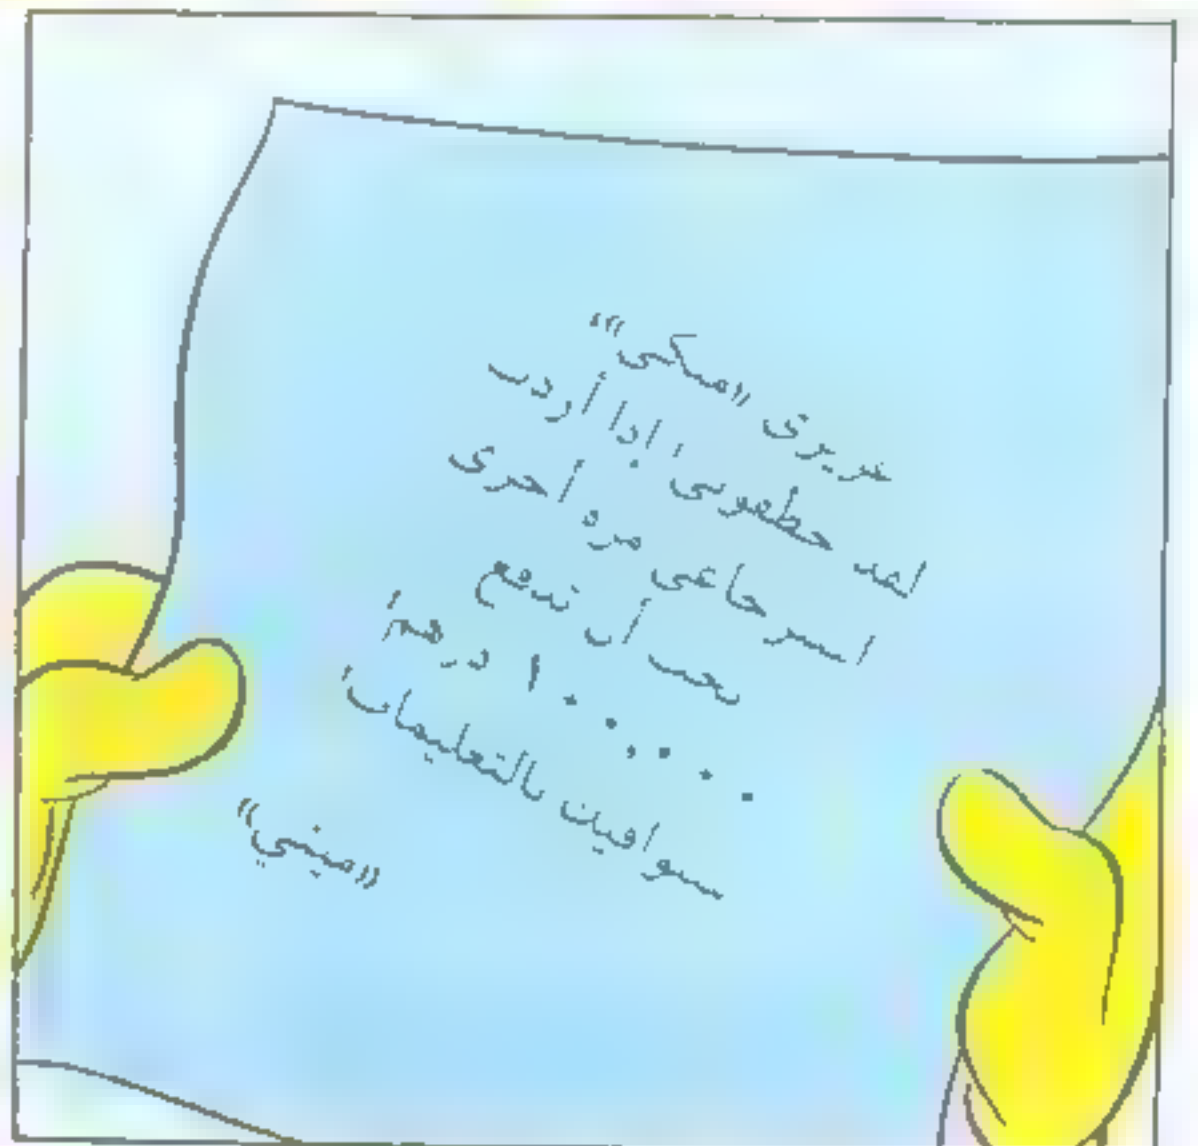 عزيزي «ميكي»
لقد خطفوني! إذا أردت
استرجاعي مرة أخرى
يجب أن تدفع
١٠٠٠،٠٠٠ درهم!
سنوافيك بالتعليمات!
«ميني»